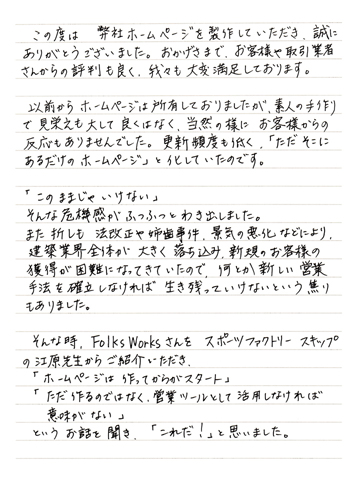 この度は 弊社ホームページを製作していただき、誠に
ありがとうございました。おかげさまで、お客様や取引業者
さんからの評判も良く、我々も大変満足しております。
以前からホームページは所有しておりましたが、素人の手作り
で見栄えも大して良くはなく、当然の様に お客様からの
反応もありませんでした。更新頻度も低く、「ただそこに
あるだけのホームページ」と化していたのです。
「このままじゃいけない」
そんな危機感がふつふつとわき出しました。
また折しも 法改正や姉歯事件、景気の悪化などにより、
建築業界全体が大きく落ち込み、新規のお客様の
獲得が困難になってきていたので、何とか新しい営業
手法を確立しなければ 生き残っていけないという焦り
もありました。
そんな時、Folks Worksさんを スポーツファクトリー スキップ
の江原先生からご紹介いただき、
「ホームページは作ってからがスタート」
「ただ作るのではなく、営業ツールとして活用しなければ
意味がない」
というお話を聞き、「これだ!」と思いました。